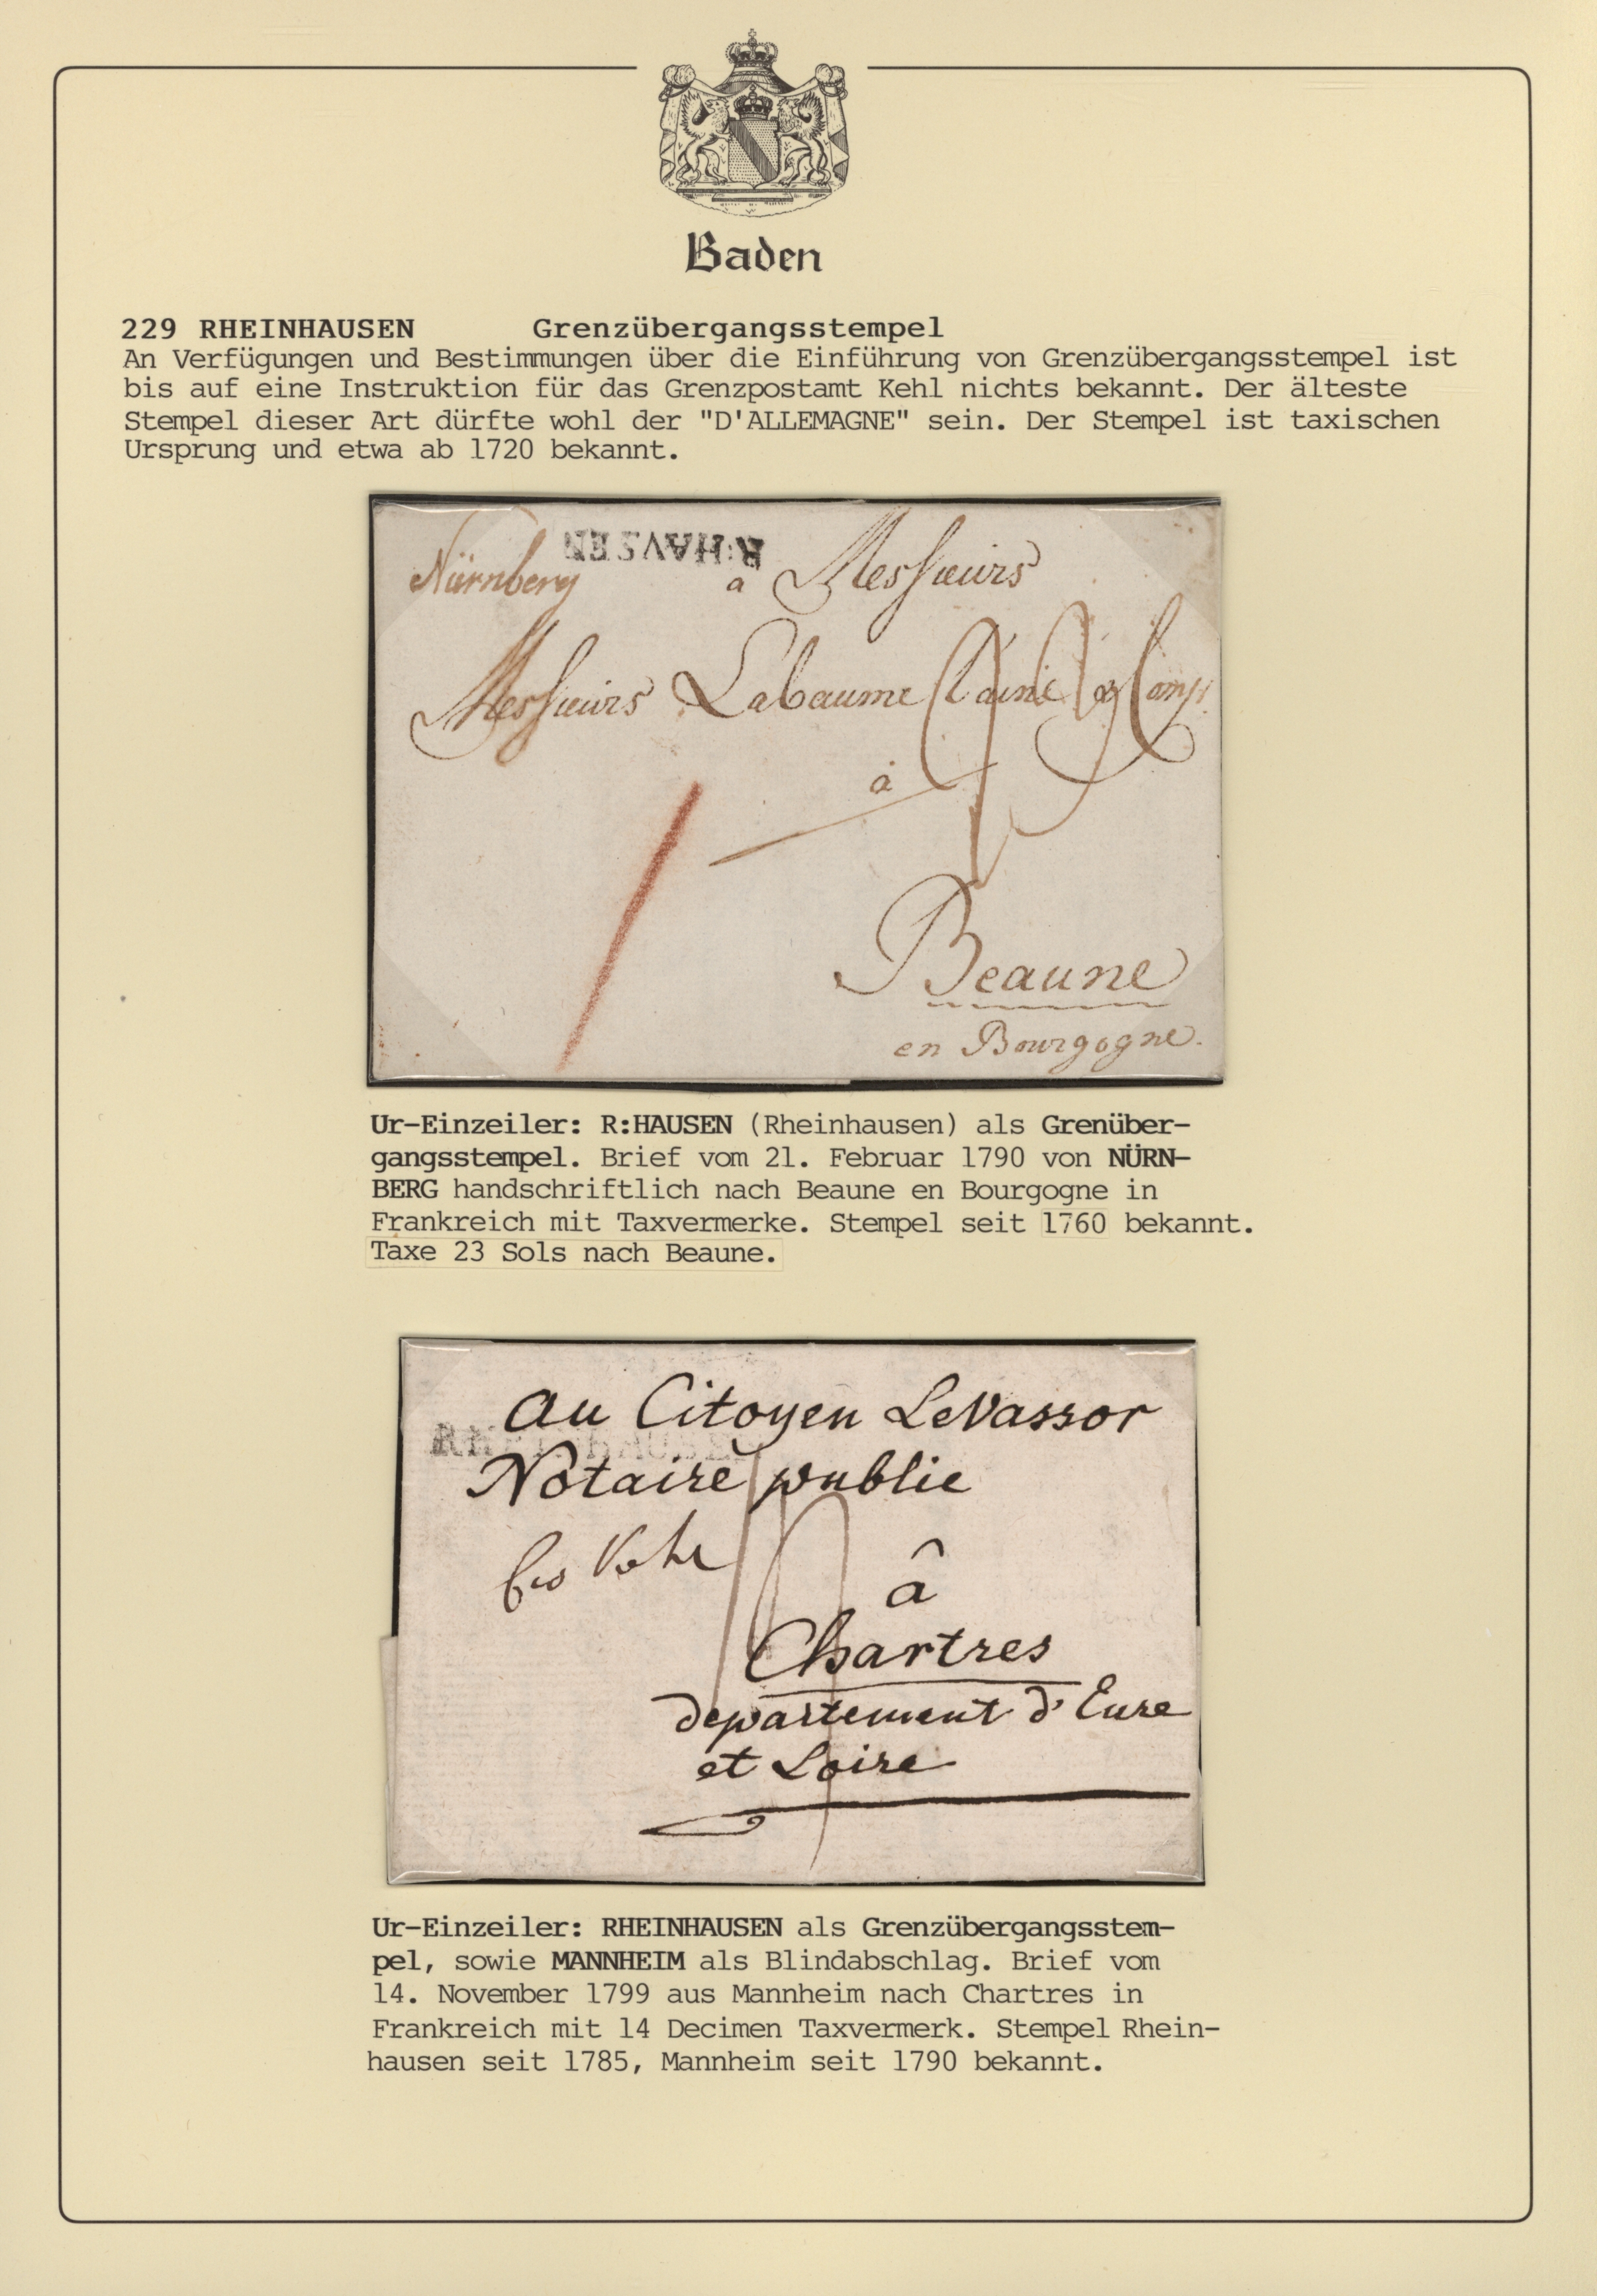 Baden
229 RHEINHAUSEN Grenzübergangsstempel
An Verfügungen und Bestimmungen über die Einführung von Grenzübergangsstempel ist
bis auf eine Instruktion für das Grenzpostamt Kehl nichts bekannt. Der älteste
Stempel dieser Art dürfte wohl der "D'ALLEMAGNE" sein. Der Stempel ist taxischen
Ursprung und etwa ab 1720 bekannt.
R:HAVSEN
Nürnberg
a Messieurs
Messieurs Labaume l'ainé & Comp.
à
Beaune
en Bourgogne.
Ur-Einzeiler: R:HAUSEN (Rheinhausen) als Grenüber-
gangsstempel. Brief vom 21. Februar 1790 von NÜRN-
BERG handschriftlich nach Beaune en Bourgogne in
Frankreich mit Taxvermerke. Stempel seit 1760 bekannt.
Taxe 23 Sols nach Beaune.
au Citoyen LeVassor
RHEINHAUSEN
Notaire publie
â
Chartres
departement d'Eure
et Loire
Ur-Einzeiler: RHEINHAUSEN als Grenzübergangsstem-
pel, sowie MANNHEIM als Blindabschlag. Brief vom
14. November 1799 aus Mannheim nach Chartres in
Frankreich mit 14 Decimen Taxvermerk. Stempel Rhein-
hausen seit 1785, Mannheim seit 1790 bekannt.